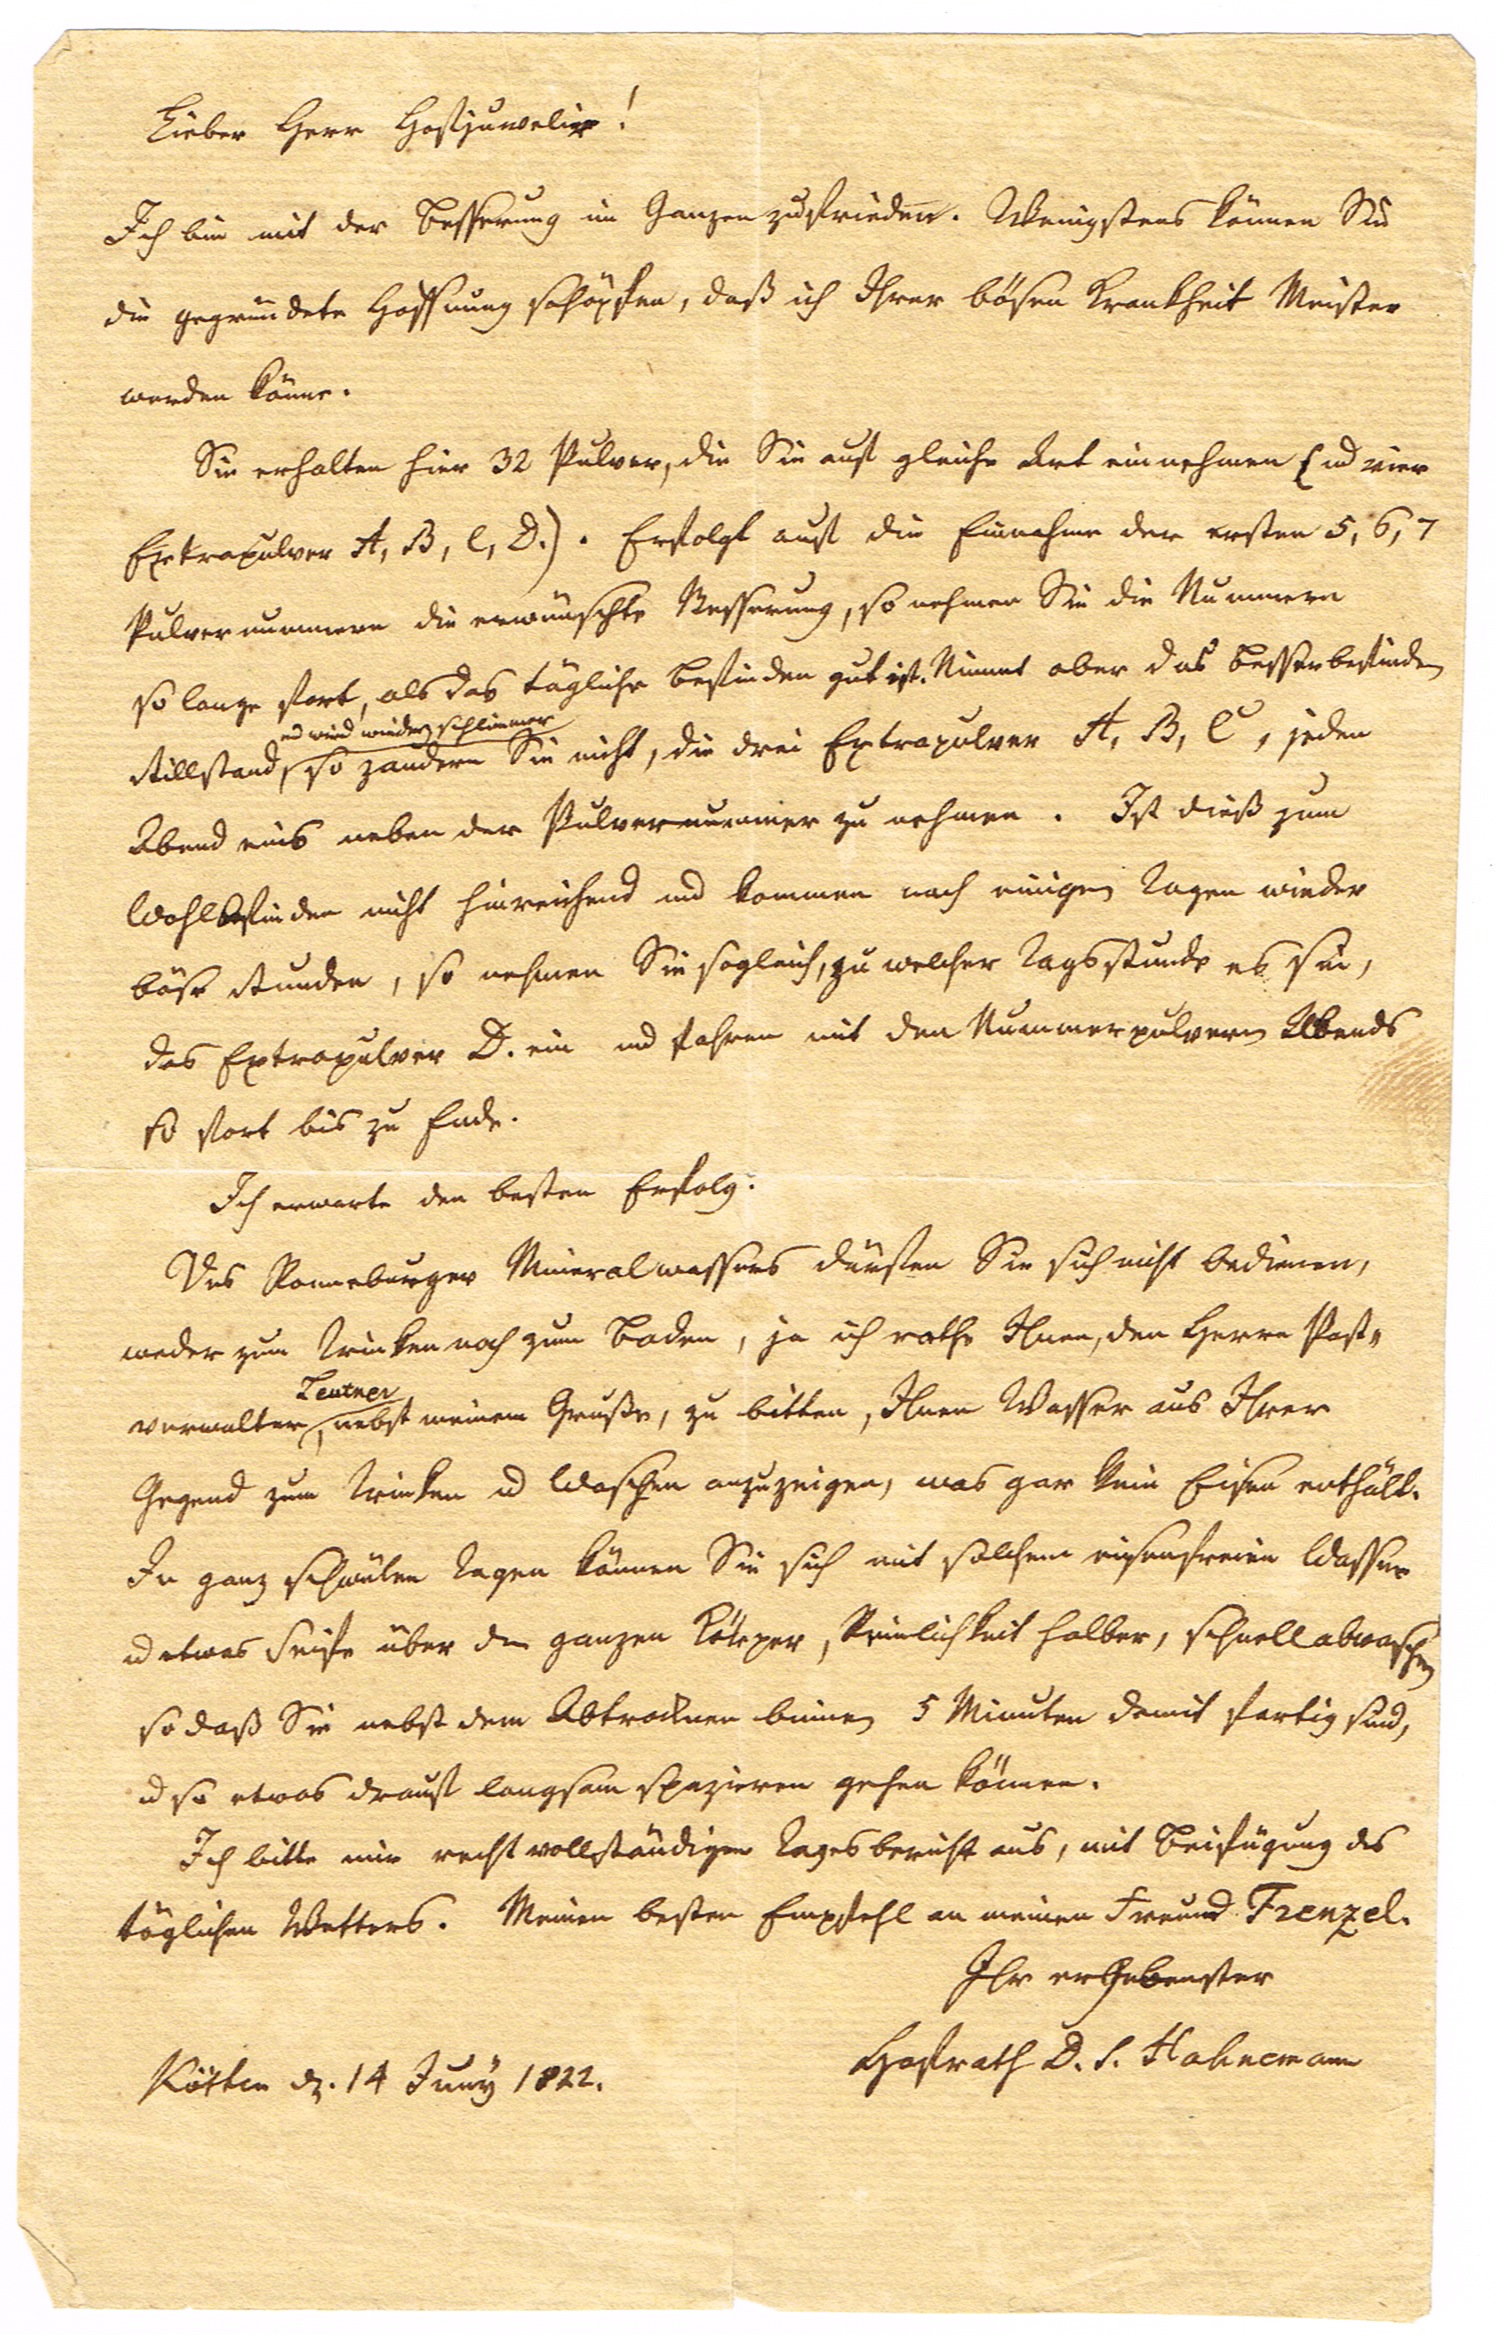 Lieber Herr Hofjuwelier!
Ich bin mit der Besserung im Ganzen zufrieden. Wenigstens können Sie
die gegründete Hoffnung schöpfen, daß ich Ihrer bösen Krankheit Meister
werden könne.
Sie erhalten hier 32 Pulver, die Sie auf gleiche Art einnehmen (und vier
Extrapulver A, B, C, D.). Erfolgt auf die Einnahme der ersten 5, 6, 7
Pulvernummern die erwünschte Besserung, so nehmen Sie die Nummern
so lange fort, als das tägliche Befinden gut ist. Nimmt aber das Besserbefinden
ud wird wieder schlimmer
Stillstand, so zaudern Sie nicht, die drei Extrapulver A, B, C, jeden
Abend eins neben der Pulvernummer zu nehmen. Ist dieß zum
Wohlbefinden nicht hinreichend und kommen nach einigen Tagen wieder
böse Stunden, so nehmen Sie sogleich, zu welcher Tagsstunde es sei,
das Extrapulver D. ein und fahren mit den Nummerpulvern Abends
so fort bis zu Ende.
Ich erwarte den besten Erfolg.
Des Ronneburger Mineralwassers dürfen Sie sich nicht bedienen,
weder zum Trinken noch zum Baden, ja ich rathe Ihnen, den Herrn Post-
Leutner
verwalter, nebst meinem Gruße, zu bitten, Ihnen Wasser aus Ihrer
Gegend zum Trinken ud Waschen anzuzeigen, was gar kein Eisen enthält.
In ganz schwülen Tagen können Sie sich mit solchem eisenfreien Wasser
ud etwas Seife über den ganzen Körper, Reinlichkeit halber, schnell abwaschen
so daß Sie nebst dem Abtrocknen binnen 5 Minuten damit fertig sind,
ud so etwas drauf langsam spazieren gehen können.
Ich bitte mir recht vollständigen Tagesbericht aus, mit Beifügung des
täglichen Wetters. Meinen besten Empfehl an meinen Freund Frenzel.
Ihr ergebenster
Hofrath D. S. Hahnemann
Köthen d. 14 Juny 1822.